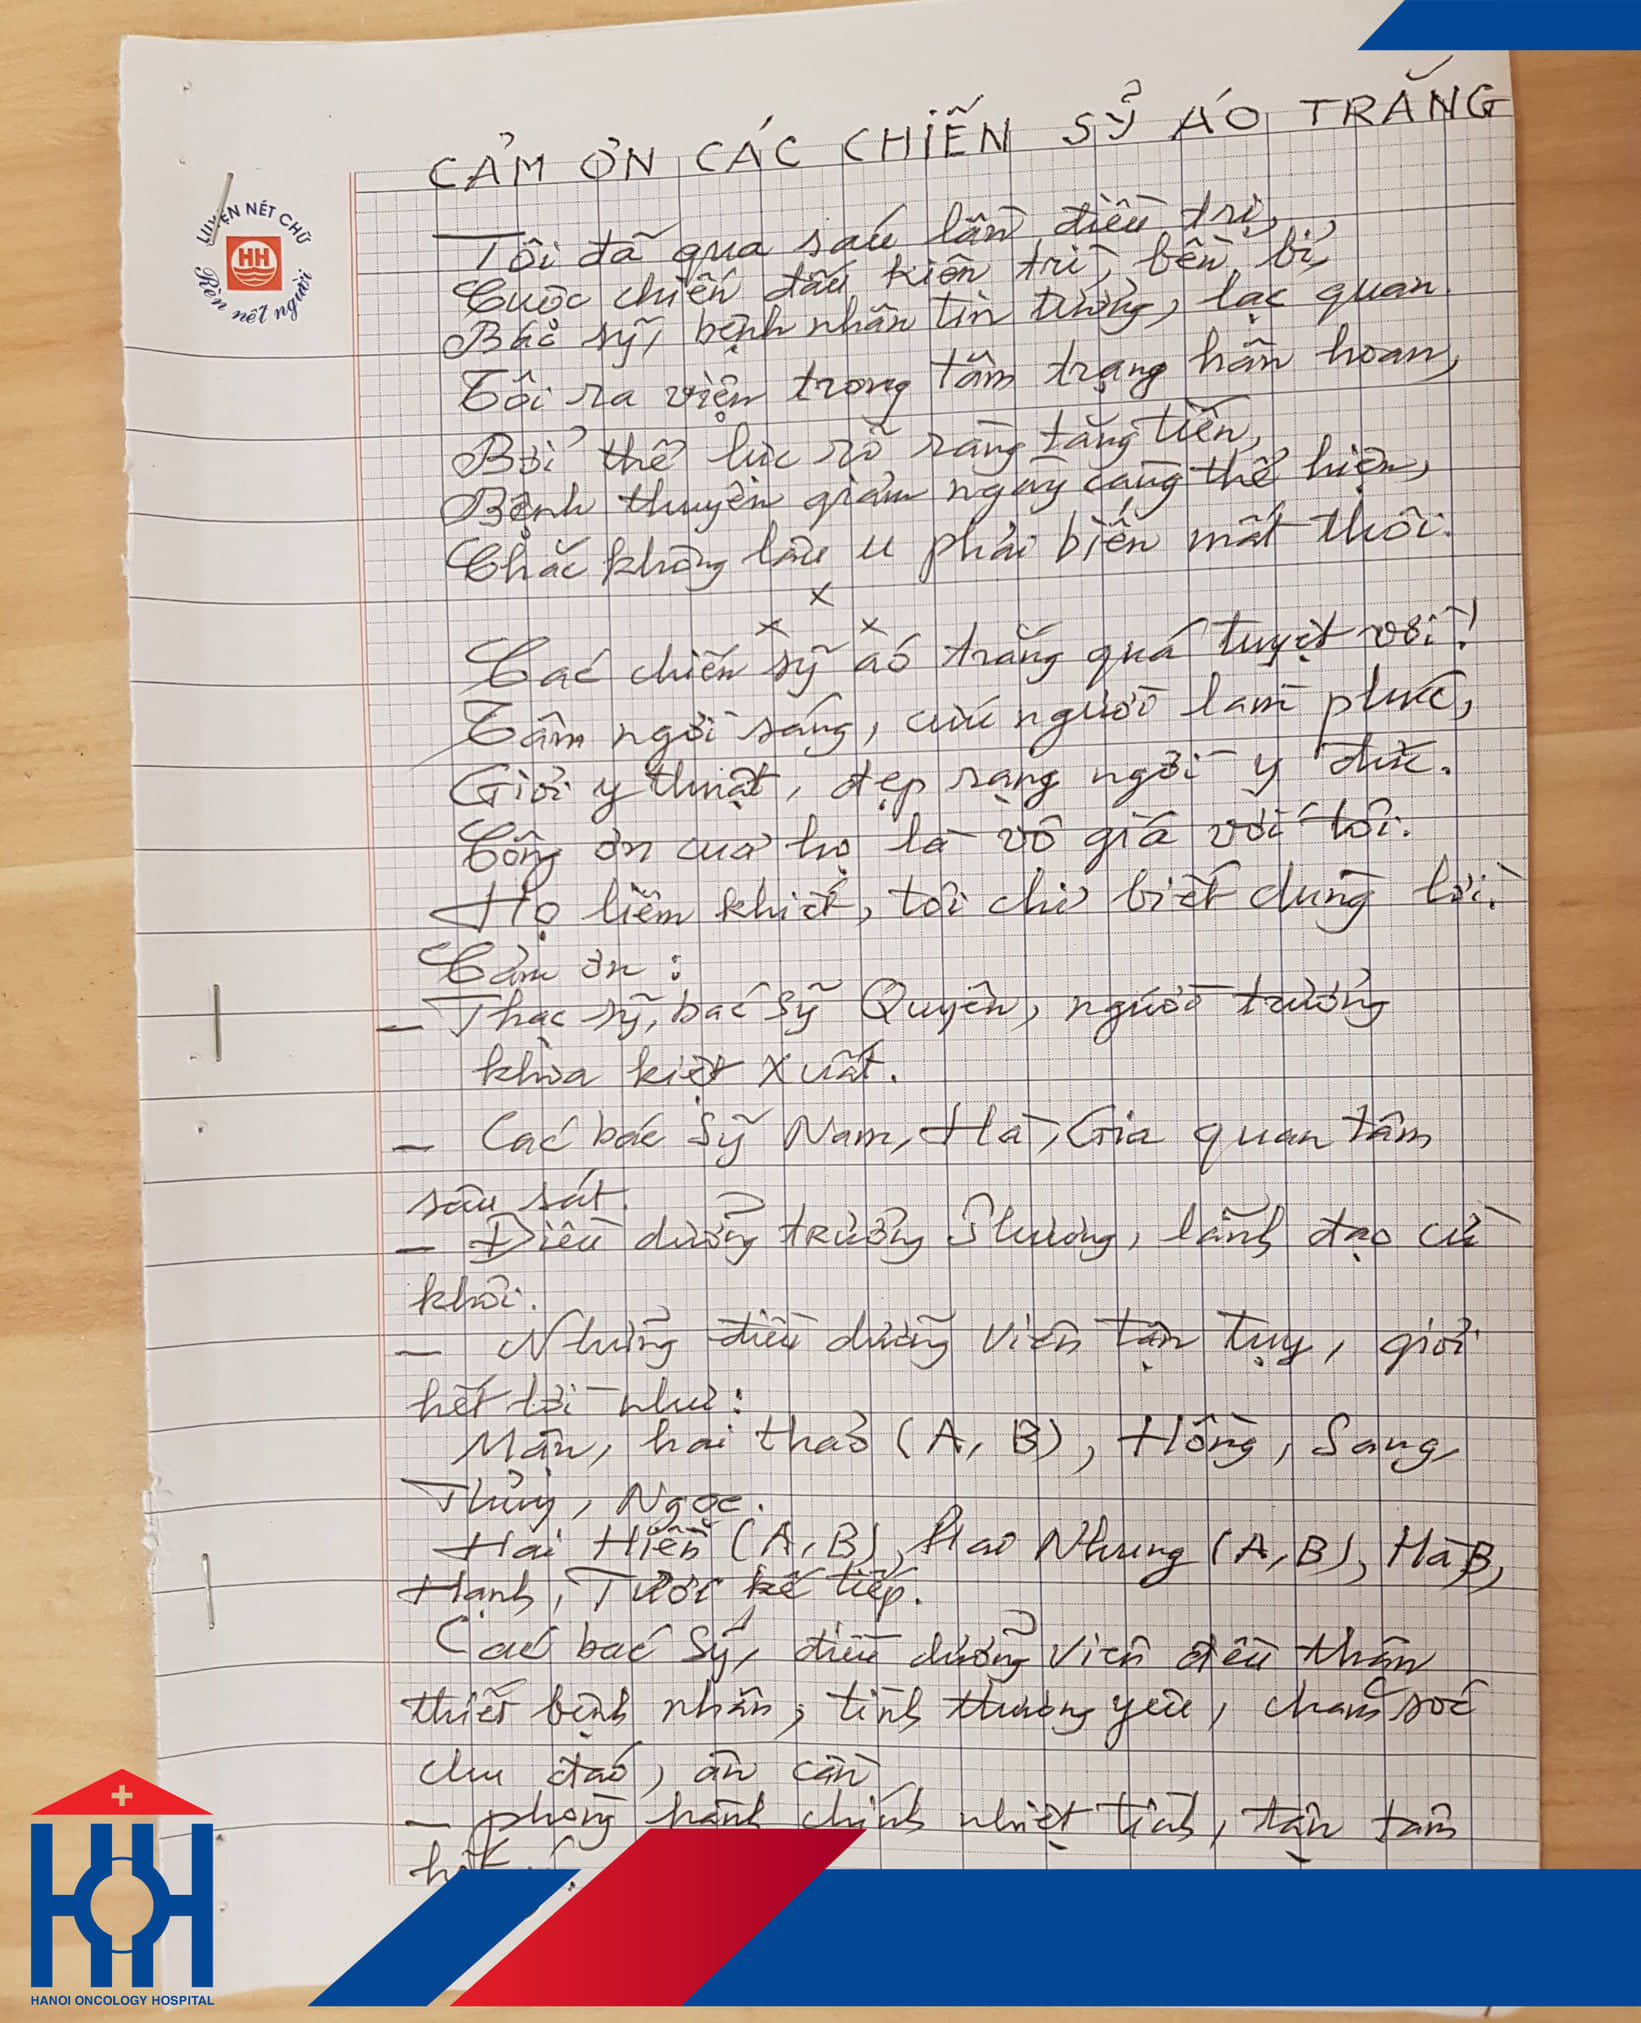 CẢM ƠN CÁC CHIẾN SỸ ÁO TRẮNG
LUYỆN NÉT CHỮ
HH
Rèn nết người
Tôi đã qua sáu lần điều trị,
Cuộc chiến đấu kiên trì, bền bỉ,
Bác sỹ, bệnh nhân tin tưởng, lạc quan.
Tôi ra viện trong tâm trạng hân hoan,
Bởi thể lực rõ ràng tăng tiến,
Bệnh thuyên giảm ngày càng thể hiện,
Chắc không lâu u phải biến mất thôi.
x
x x
Các chiến sỹ áo trắng quá tuyệt vời!
Tâm ngời sáng, cứu người làm phúc,
Giỏi y thuật, đẹp rạng ngời y đức.
Công ơn của họ là vô giá với tôi.
Họ liêm khiết, tôi chỉ biết dùng lời.
Cảm ơn:
- Thạc sỹ, bác sỹ Quyên, người trưởng
khoa kiệt xuất.
- Các bác sỹ Nam, Hà, Gia quan tâm
sâu sát.
- Điều dưỡng trưởng Phương, lãnh đạo cừ
khôi.
- Những điều dưỡng viên tận tụy, giỏi
hết lời như:
Mận, hai thảo (A, B), Hồng, Sang,
Thủy, Ngọc.
Hai Hiền (A, B), Hai Nhung (A, B), Hà B,
Hạnh, Tươi kế tiếp.
Các bác sỹ, điều dưỡng viên đều thân
thiết bệnh nhân, tình thương yêu, chăm sóc
chu đáo, ân cần
- phòng hành chính nhiệt tình, tận tâm
HANOI ONCOLOGY HOSPITAL